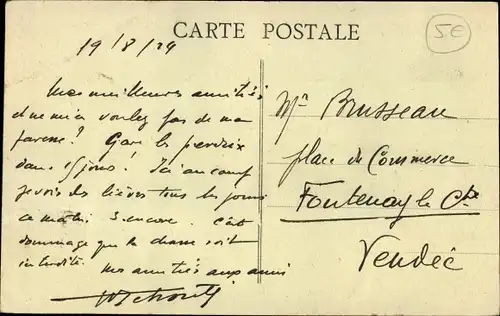 CARTE POSTALE
5€
19/8/29
Mes meilleures amitiés,
et ne m'en voulez pas de ma
paresse ? Gare les perdrix
dans 15 jours ! Ici au camp
je vois des lièvres tous les jours
ce matin 3 encore. C'est
dommage que la chasse soit
interdite. Mes amitiés aux amis
Mr Brusseau
place du Commerce
Fontenay le Cte
Vendée